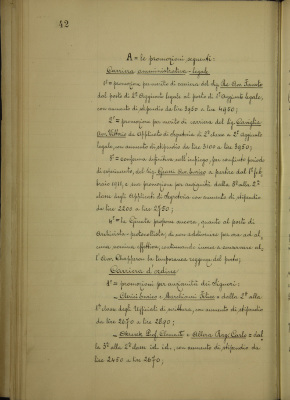 42
A = le promozioni seguenti:
Carriera amministrativo-legale
1° = promozione per merito di carriera del Sig. Avv.
dal posto di 2° Aggiunto legale al posto di 1° Aggiunto legale,
con aumento di stipendio da lire 3950 a lire 4950;
2° = promozione per merito di carriera del Sig.
Avv. Vittorio da Applicato di Segreteria di 2° classe a 2° Aggiunto
legale, con aumento di stipendio da lire 3100 a lire 3950;
3° = conferma definitiva nell'impiego, per compiuto periodo
di esperimento, del Sig. Avv. Enrico a partire dal 1° feb-
braio 1911, e sua promozione per anzianità dalla 3° alla 2°
classe degli Applicati di Segreteria con aumento di stipendio
da lire 2200 a lire 2750;
4° = la Giunta propone ancora, quanto al posto di
Archivista-protocollista, di non addivenire per ora ad al-
cuna nomina effettiva, continuando invece a conservare al
l'Avv. la temporanea reggenza del posto;
Carriera d'ordine
1° = promozioni per anzianità dei Signori:
Enrico e Felice = dalla 2° alla
1° classe degli Ufficiali di scrittura, con aumento di stipendio
da lire 2670 a lire 2890;
Clemente e Rag. Carlo = dal
la 3° alla 2° classe id. id., con aumento di stipendio da
lire 2450 a lire 2670;